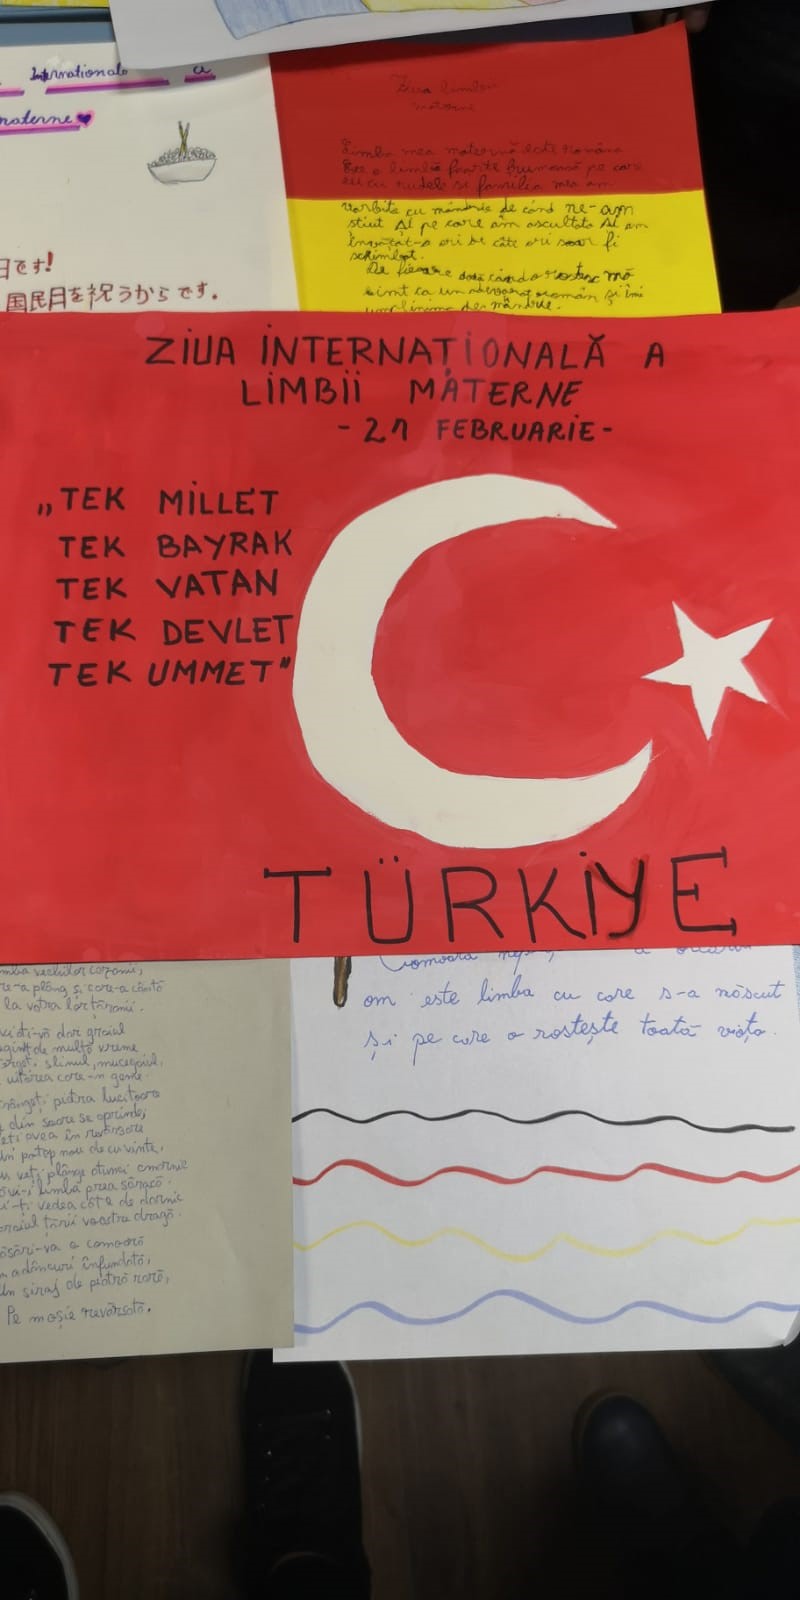 Internationale a
materne
日です!
国民日を祝うからです。
Ziua limbii
materne
Limba mea maternă este româna
Este o limbă foarte frumoasă pe care
eu cu rudele și familia mea am
vorbito cu mândrie de când ne-am
știut Al pe care am ascultato Al am
învățat-o ori de câte ori soar fi
schimbat.
De fiecare dată când o rostesc mă
simt ca un adevărat român și îmi
umpl inima de mândrie.
ZIUA INTERNAȚIONALĂ A
LIMBII MATERNE
- 21 FEBRUARIE -
„TEK MILLET
TEK BAYRAK
TEK VATAN
TEK DEVLET
TEK UMMET"
TÜRKİYE
limba vechilor cazanii,
re-a plâng și care-a cântă
la vatra lor țăranii.
dar graiul
de multă vreme
slinul, mucegaiul,
uitarea care-n geme.
piatra lucitoare
din soare se aprinde
ți avea în revărsare
Un potop nou de cuvinte.
veți plânge atunci amarnic
limba prea săracă
vedea cât e de darnic
graiul țării voastre dragă.
Răsări-va o comoară
n adâncuri înfundată,
Un șirag de piatră rară,
Pe moșie revărsată.
Comoara
om este limba cu care s-a născut
și pe care o rostește toată viața.